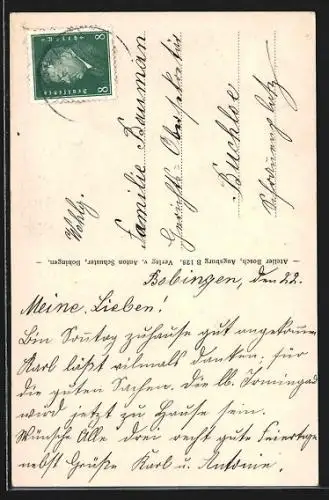 8 Deutsches Reich 8
Wohlg.
Familie Bauman
Buchloe
— Atelier Bosch, Augsburg B 129. Verlag v. Anton Schuster, Bobingen. —
Bobingen, den 22.
Meine Lieben!
Bin Sonntag zuhause gut angekommen
Karl läßt vilmals danken, für
die guten Sachen. Die lb.
wird jetzt zu Hause sein.
Wünsche Alle drei recht gute Feiertage
nebst Grüße Karl u. Antonie.